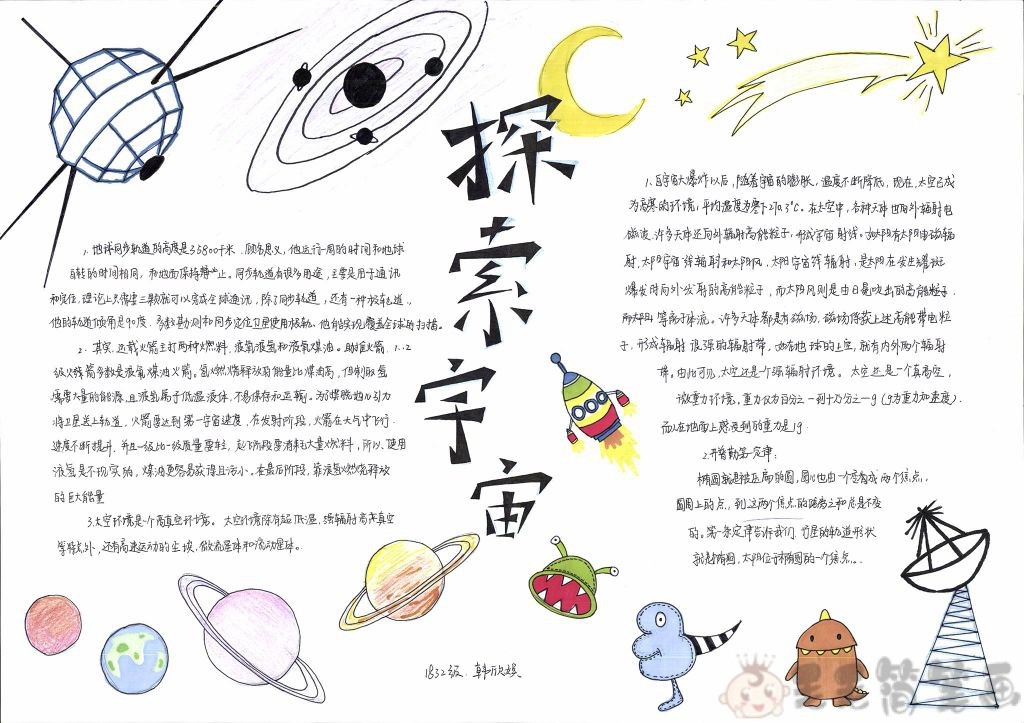 探索宇宙
1.地球同步轨道的高度是35800千米。顾名思义，他运行一周的时间和地球
自转的时间相同，和地面保持静止。同步轨道有很多用途，主要是用于通讯
和定位，理论上只需要三颗就可以完成全球通讯，除了同步轨道，还有一种极轨道，
他的轨道倾角是90度，多数勘测和同步定位卫星使用极轨。他能实现覆盖全球的扫描。
2.其实，运载火箭主打两种燃料，液氧液氢和液氧煤油。助推火箭，1、2
级火箭多数是液氧煤油火箭。氢燃烧释放的能量比煤油高，但制取氢
需要大量的能源，且液氢属于低温液体，不易保存和压缩。为摆脱地心引力
将卫星送上轨道，火箭要达到第一宇宙速度，在发射阶段，火箭在大气中飞行
速度不断提升，并且一级比一级质量要轻，起飞阶段要消耗大量燃料，所以，使用
液氢是不现实的，煤油更容易获得且污小。在最后阶段，靠液氢燃烧释放
的巨大能量
3.太空环境是一个高真空环境。太空环境除有超低温，强辐射高真空
等特点外，还有高速运动的尘埃，微流星体和流动星体。
1.自宇宙大爆炸以后，随着宇宙的膨胀，温度不断降低，现在，太空已成
为高寒的环境，平均温度为零下270.3℃。在太空中，各种天体也向外辐射电
磁波，许多天体还向外辐射高能粒子，形成宇宙射线。如太阳有太阳电磁辐
射，太阳宇宙线辐射和太阳风，太阳宇宙线辐射，是太阳在发生耀斑
爆发时向外发射的高能粒子，而太阳风则是由日冕吹出的高能粒子
等离子体流。许多天体都是有磁场，磁场俘获上述高能带电粒
子，形成辐射很强的辐射带，如在地球的上空，就有内外两个辐射
带。由此可见，太空还是一个强辐射环境。太空还是一个真高空，
微重力环境，重力仅为百分之一到十万分之一g（g为重力加速度）
而人在地面上感受到的重力是1g
2.开普勒第一定律：
椭圆就是被压扁的圆，圆心也由一个变成两个焦点，
圆周上的点，到这两个焦点的距离之和总是不变
的。第一条定律告诉我们，行星的轨道形状
就是椭圆，太阳位于椭圆的一个焦点。
1832级 韩欣娱
简笔画